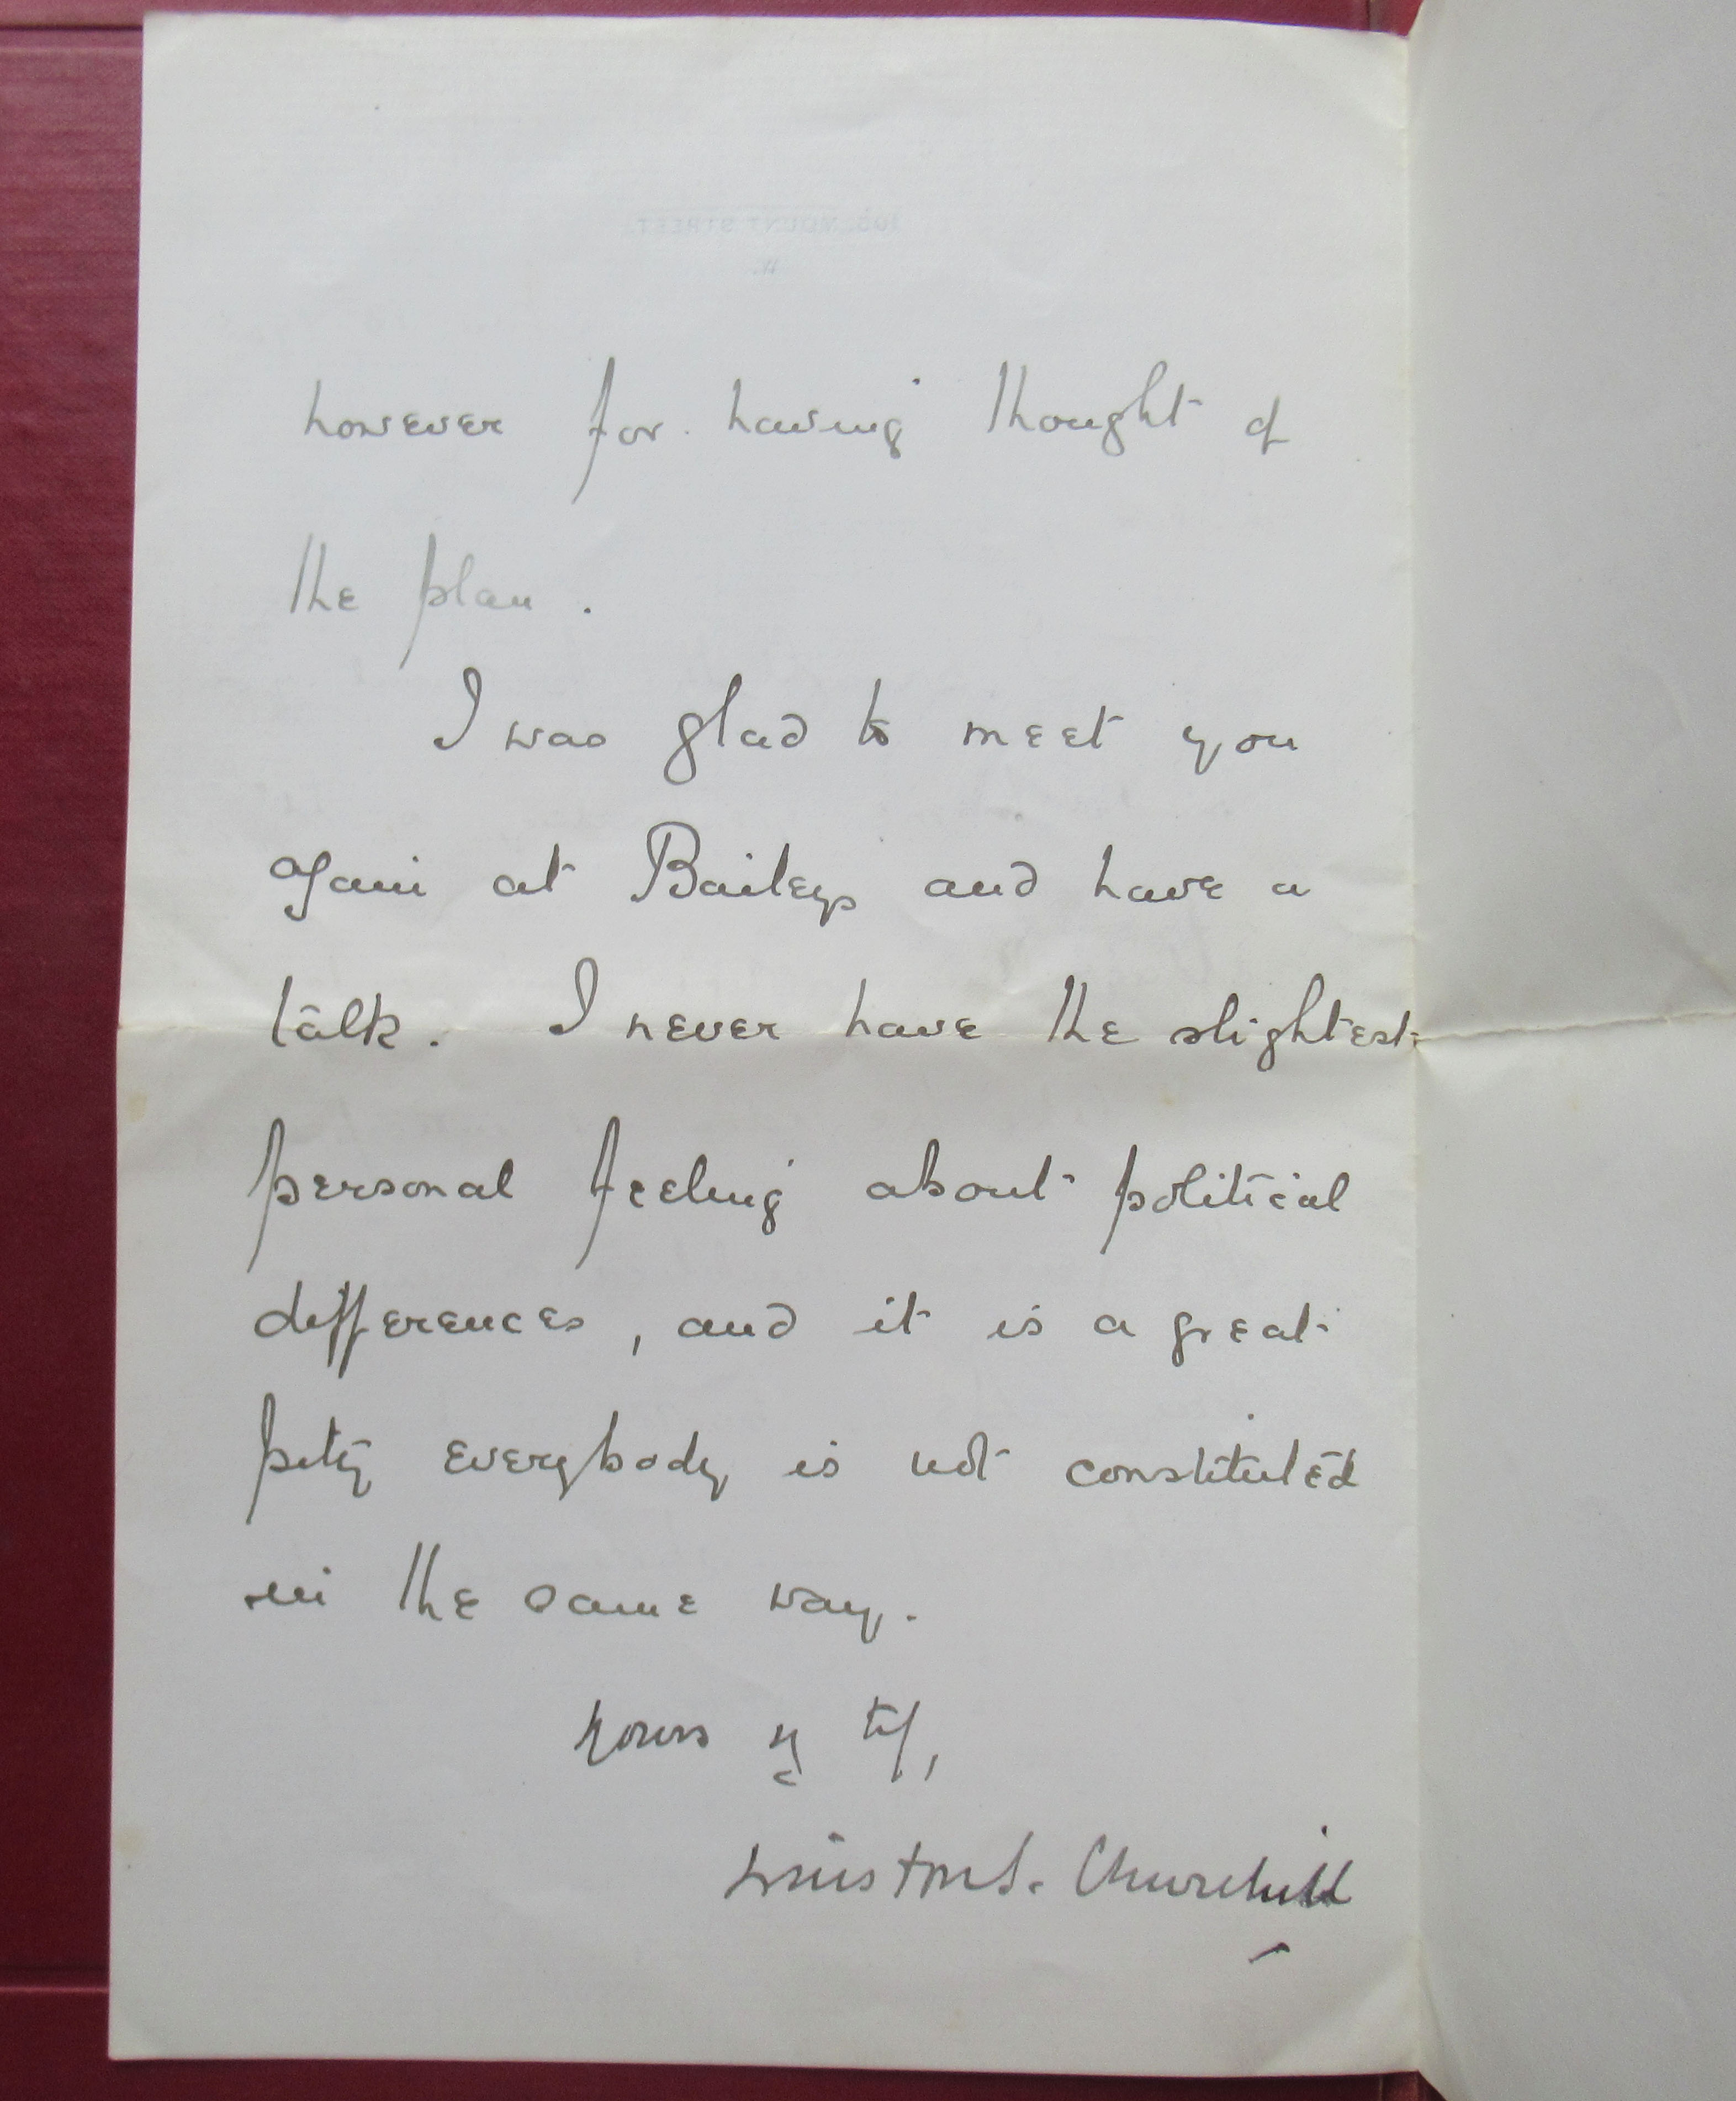 105, MOUNT STREET.
W.
however for having thought of
the plan.
I was glad to meet you
again at Baileys and have a
talk. I never have the slightest
personal feeling about political
differences, and it is a great
pity everybody is not constituted
in the same way.
Yours v tly,
Winston S. Churchill